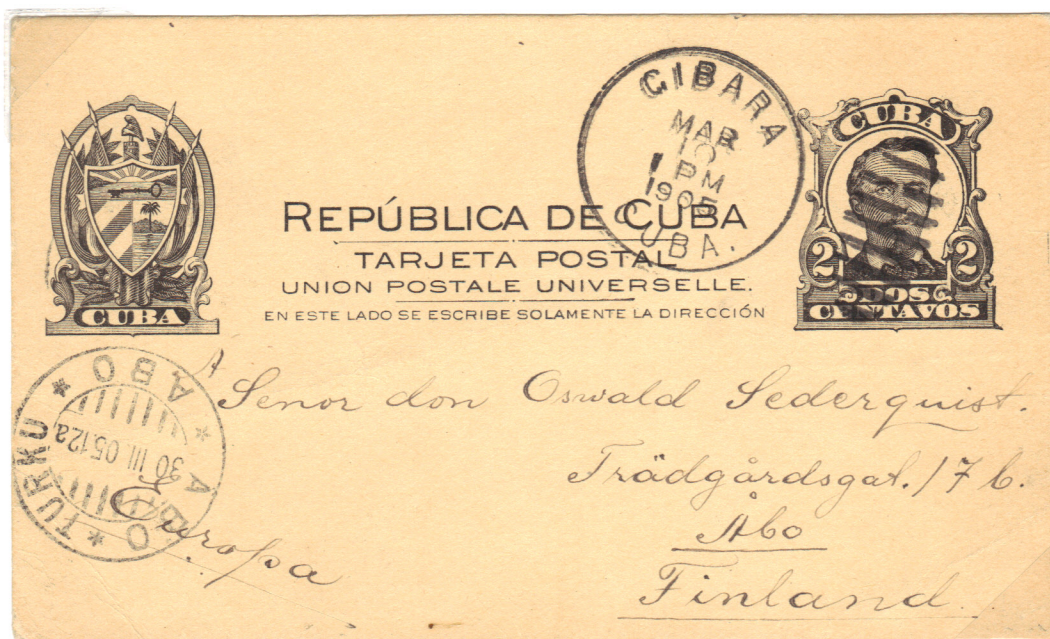 CUBA
REPÚBLICA DE CUBA
TARJETA POSTAL
UNION POSTALE UNIVERSELLE.
EN ESTE LADO SE ESCRIBE SOLAMENTE LA DIRECCIÓN
GIBARA
MAR
10
1 PM
1905
CUBA.
CUBA
2 2
DOS
CENTAVOS
TURKU * ABO * ÅBO *
30 III 05.12a
A
Senor don Oswald Sederquist.
Trädgårdsgat. 17 b.
Åbo
Finland.
Europa